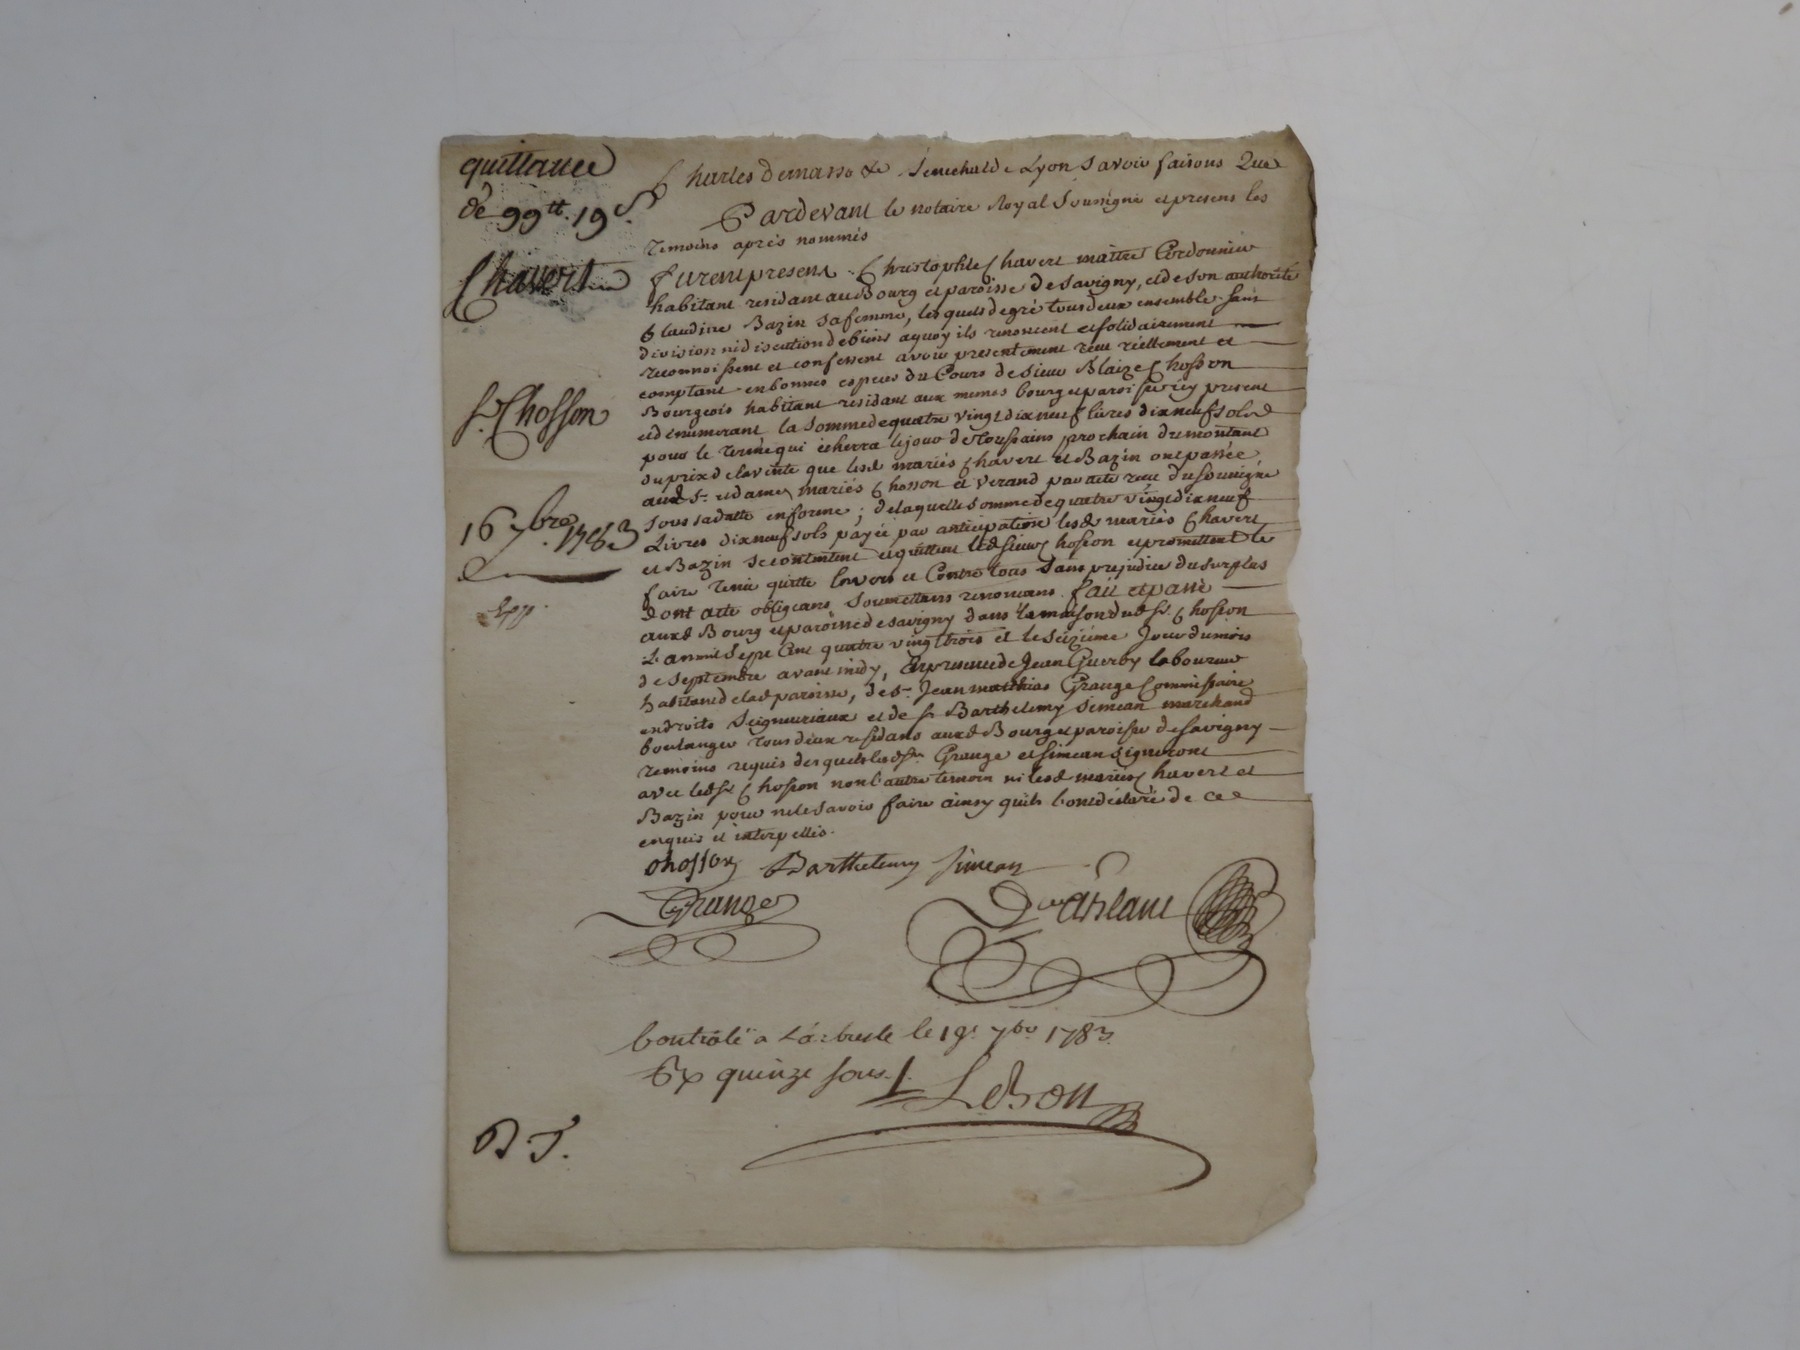 quittance
de 99tt. 19s.
Chavert
Sr. Chosson
16 7bre. 1783
Charles Demasso &c Senechal de Lyon Savoir faisons Que
Pardevant le notaire Royal Soussigné et presens les
temoins après nommés
furent presens Christophle Chavert maitre Cordonnier
habitant residant au Bourg et paroisse de Savigny, et de son authorité
Claudine Bazin sa femme, lesquels de gré tous deux ensemble sans
division ni discution de biens a quoy ils renoncent et solidairement
reconnoissent et confessent avoir presentement reçu réellement et
comptant en bonnes especes du Cours de sieur Blaize Chosson
Bourgeois habitant residant aux memes bourg et paroisse icy present
et denumerant la somme de quatre vingt dix neuf livres dix neuf sols
pour le terme qui écherra le jour de Toussains prochain du montant
du prix de la vente que lesd mariés Chavert et Bazin ont passée
auxd Sr. et dame mariés Chosson et Verand par acte reçu du soussigné
sous sa datte en forme ; de laquelle somme de quatre vingt dix neuf
Livres dix neuf sols payée par anticipation lesd mariés Chavert
et Bazin se contentent et quittent led sieur Chosson et promettent le
faire tenir quitte envers et Contre tous sans prejudice du surplus
dont acte obligeans soumettans renonceans. fait et passé
auxd Bourg et paroisse de Savigny dans la maison dud Sr. Chosson
L'an mil sept Cent quatre vingt trois et le seizième Jour du mois
de Septembre avant midy, En presence de Jean Guerby laboureur
habitant de lad paroisse, de Sr. Jean matthias Grange Commissaire
en droits Seigneuriaux et de Sr Barthelemy Simean marchand
boulanger tous deux residans auxd Bourg et paroisse de Savigny
temoins requis desquels lesd Srs Grange et Simean signeront
avec led Sr Chosson non l'autre temoin ni lesd mariés Chavert et
Bazin pour ne le savoir faire ainsy qu'ils l'ont déclaré de ce
enquis et interpellés.
Chosson Barthelemy Simean
Grange
Contrôlé a L'arbresle le 19. 7bre 1783.
quinze sous.
LeBon